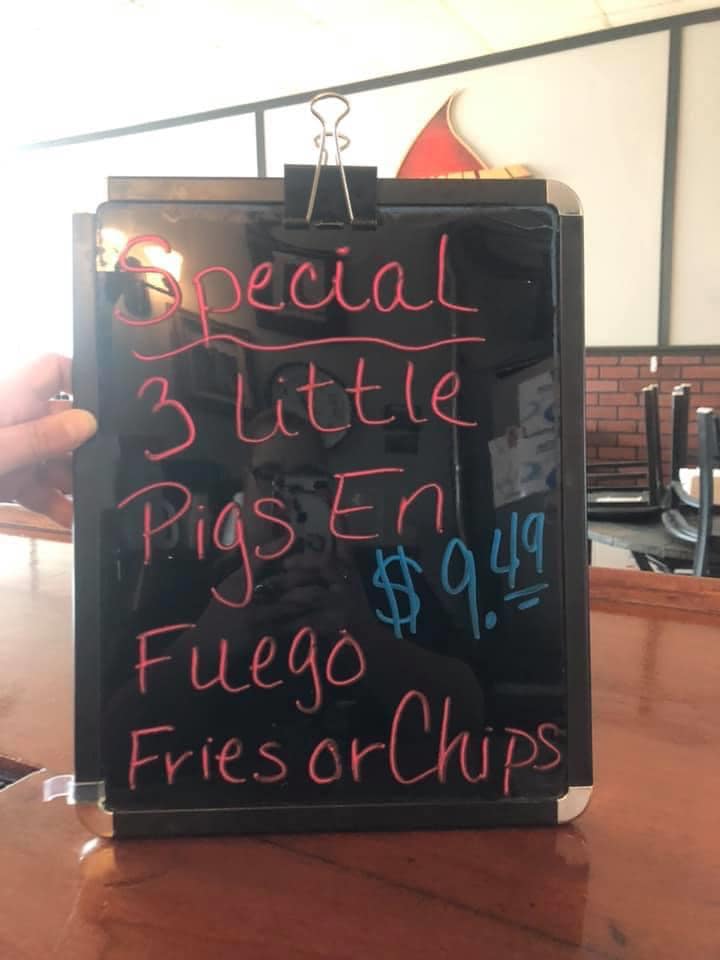 Special
3 Little
Pigs En
$9.49
Fuego
Fries or Chips